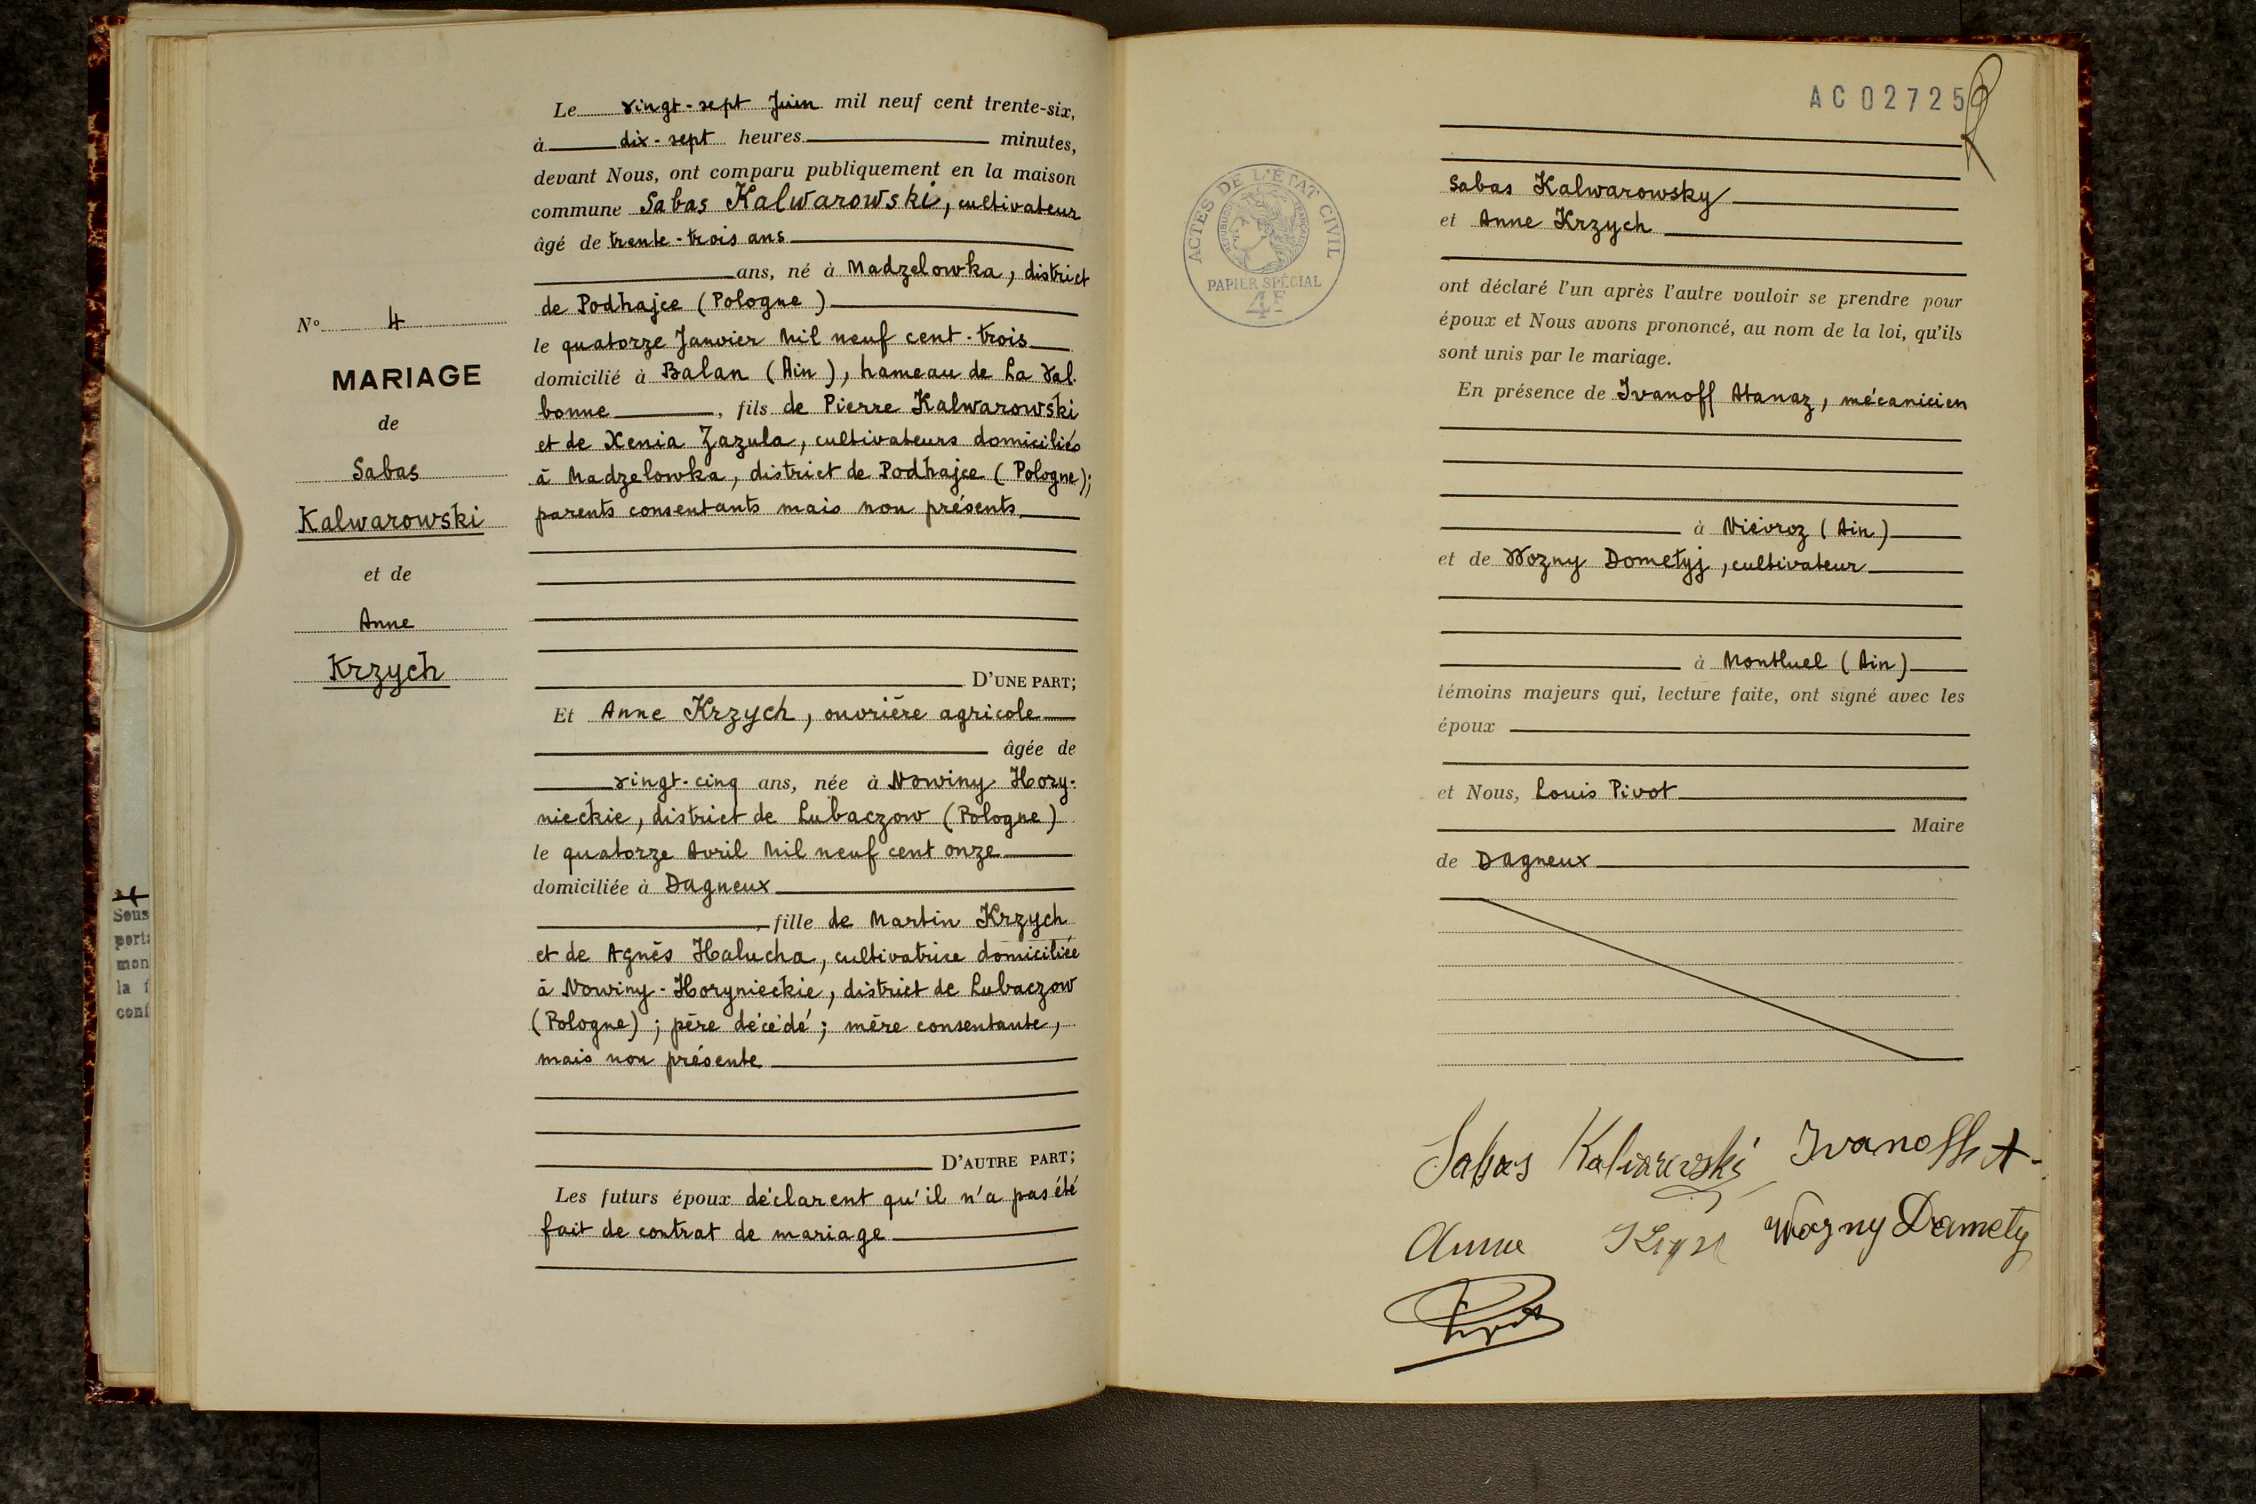 N° 4
MARIAGE
de
Sabas
Kalwarowski
et de
Anne
Krzych
Sous
mon
la
Le vingt-sept Juin mil neuf cent trente-six,
à dix-sept heures minutes,
devant Nous, ont comparu publiquement en la maison
commune Sabas Kalwarowski, cultivateur
âgé de trente-trois ans
ans, né à Madzelowka, district
de Podhajce (Pologne)
le quatorze Janvier Mil neuf cent-trois
domicilié à Balan (Ain), hameau de La Val-
bonne, fils de Pierre Kalwarowski
et de Xenia Zazula, cultivateurs domiciliés
à Madzelowka, district de Podhajce (Pologne);
parents consentants mais non présents
D'UNE PART;
Et Anne Krzych, ouvrière agricole
âgée de
vingt-cinq ans, née à Nowiny Hory-
nieckie, district de Lubaczow (Pologne)
le quatorze Avril Mil neuf cent onze
domiciliée à Dagneux
, fille de Martin Krzych
et de Agnès Halucha, cultivatrice domiciliée
à Nowiny-Horynieckie, district de Lubaczow
(Pologne); père décédé; mère consentante,
mais non présente
D'AUTRE PART;
Les futurs époux déclarent qu'il n'a pas été
fait de contrat de mariage
AC02725
ACTES DE L'ÉTAT CIVIL
RÉPUBLIQUE FRANÇAISE
PAPIER SPÉCIAL
4F
Sabas Kalwarowsky
et Anne Krzych
ont déclaré l'un après l'autre vouloir se prendre pour
époux et Nous avons prononcé, au nom de la loi, qu'ils
sont unis par le mariage.
En présence de Ivanoff Atanaz, mécanicien
à Niévroz (Ain)
et de Wozny Dometyj, cultivateur
à Montluel (Ain)
témoins majeurs qui, lecture faite, ont signé avec les
époux
et Nous, Louis Pivot
Maire
de Dagneux
Sabas Kalwarowski Ivanoff A.
Anna Wozny Damety
Pivot